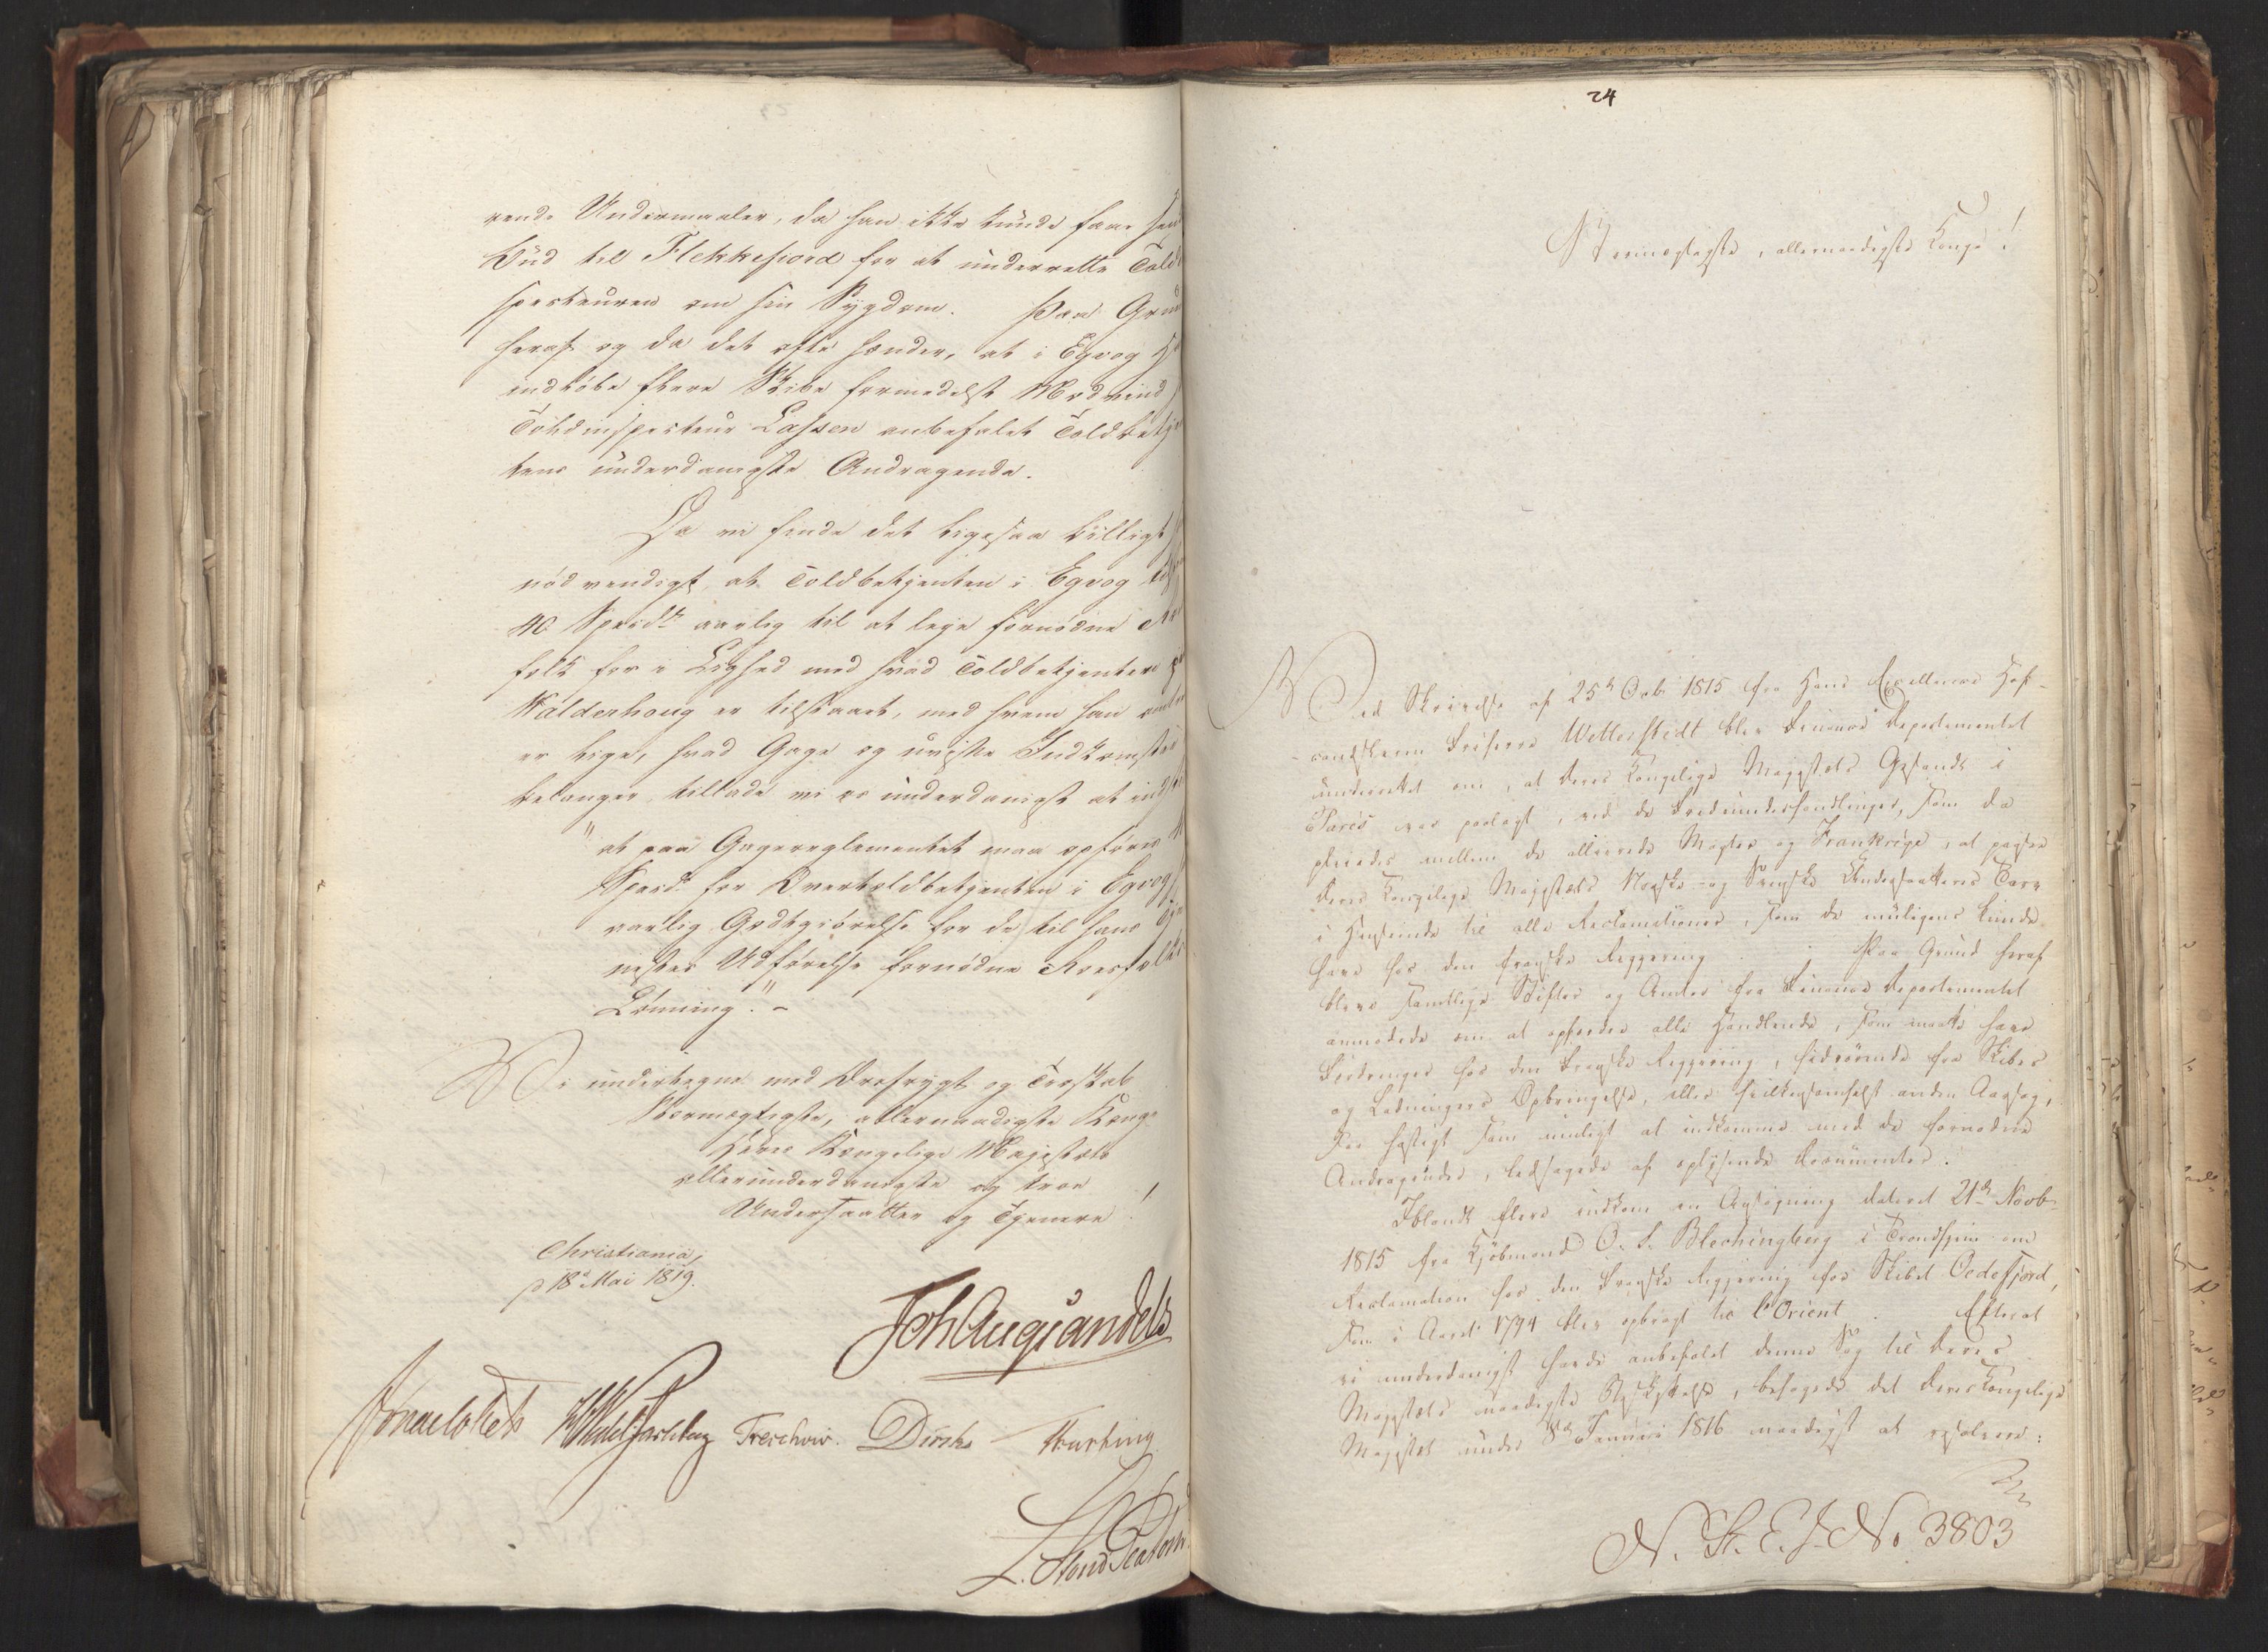 rende Undermaaler, da han ikke kunde faae send
Bud til Flekkefiord for at underrette Toldin
specteuren om sin Sygdom. Paa Grund
heraf og da det ofte hænder, at i Egvog H
indløbe flere Skibe formedelst Modvind
Toldinspecteur Lassen anbefalet Toldbetjen
tens underdanigste Andragende.
Da vi finde det ligesaa billigt
nødvendigt, at Toldbetjenten i Egvog
40 Specdr aarlig til at leje fornødne Roe
folk for i Lighed med hvad Toldbetjenten
Walderhoug er tilstaaet, med hvem han
er lige, hvad Gage og uvisse Indkomster
belanger, tillade vi os underdanigst at indst
"at paa Gagereglementet maa opføres 40
Specdr for Overtoldbetjenten i Egvog
aarlig Godtgiørelse for de til hans Tje
nestes Udførelse fornødne Roersfolks
Lønning." -
Vi undertegne med Ærefrygt og Troskab
Stormægtigste, allernaadigste Konge
Deres Kongelige Majestæts
allerunderdanigste og troe
Undersaatter og Tjenere!
Christiania,
d 18de Mai 1819.
Joh Aug Sandels
Sommerhielm Wedel Jarlsberg Treschow. Diriks Krebting
L. Stoud Platou
24
Stormægtigste, allernaadigste Konge!
Ved Skrivelse af 25de Octb 1815 fra Hans Excellence Hof-
cantsleren Friherre Wetterstedt blev Finants Departementet
underrettet om, at Deres Kongelige Majestæts Gesandt i
Paris var paalagt, ved de Fredsunderhandlinger, som da
pleiedes mellem de allierede Magter og Frankrige, at paasee
Deres Kongelige Majestæts Norske- og Svenske Undersaatteres Tarv
i Henseende til alle Reclamationer, som de muligens kunde
have hos den franske Regjering. Paa Grund heraf
bleve samtlige Stifter og Amter fra Finants Departementet
anmodede om at opfordre alle Handlende, som maatte have
Fordringer hos den Franske Regjering, hidrørende fra Skibes
og Ladningers Opbringelse, eller hvilkensomhelst anden Aarsag,
saa hastigt som muligt at indkomme med de fornødne
Andragender, ledsagede af oplysende Documenter.
Iblandt flere indkom en Ansøgning dateret 21de Novb
1815 fra Kjøbmand O. F. Blechingberg i Trondhjem om
Reclamation hos den Franske Regjering for Skibet Oedefjord,
som i Aaret 1794 blev opbragt til l'Orient. Efterat
vi underdanigst havde anbefalet denne Sag til Deres
Majestæts naadigste Beskyttelse, behagede det Deres Kongelige
Majestæt under 8de Januari 1816 naadigst at resolvere:
N. St. E. J. No. 3803